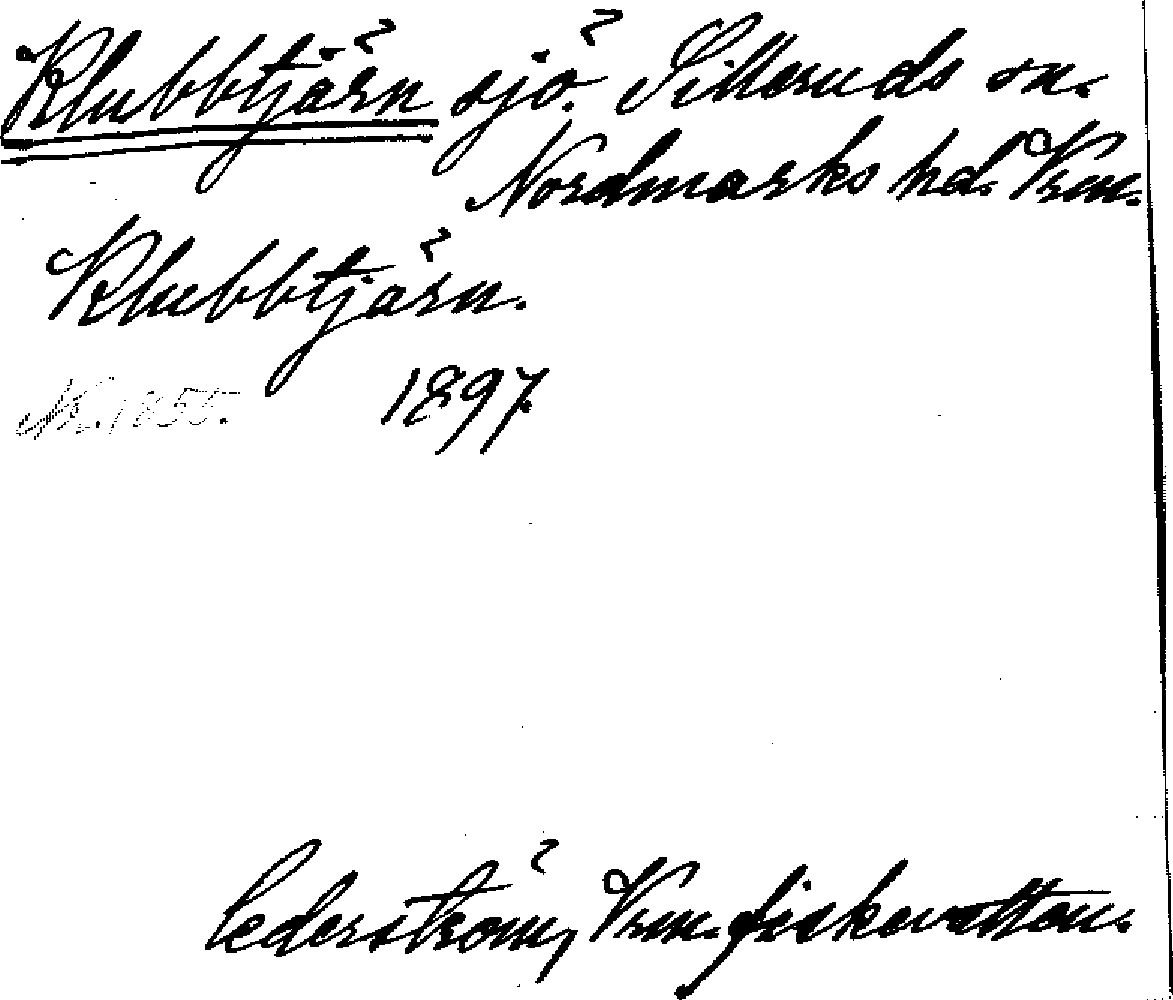 Klubbtjärn sjö. Silleruds sn.
Nordmarks hd. Vrm.
Klubbtjärn.
1897.
Cederström, Vrm. fiskevatten.